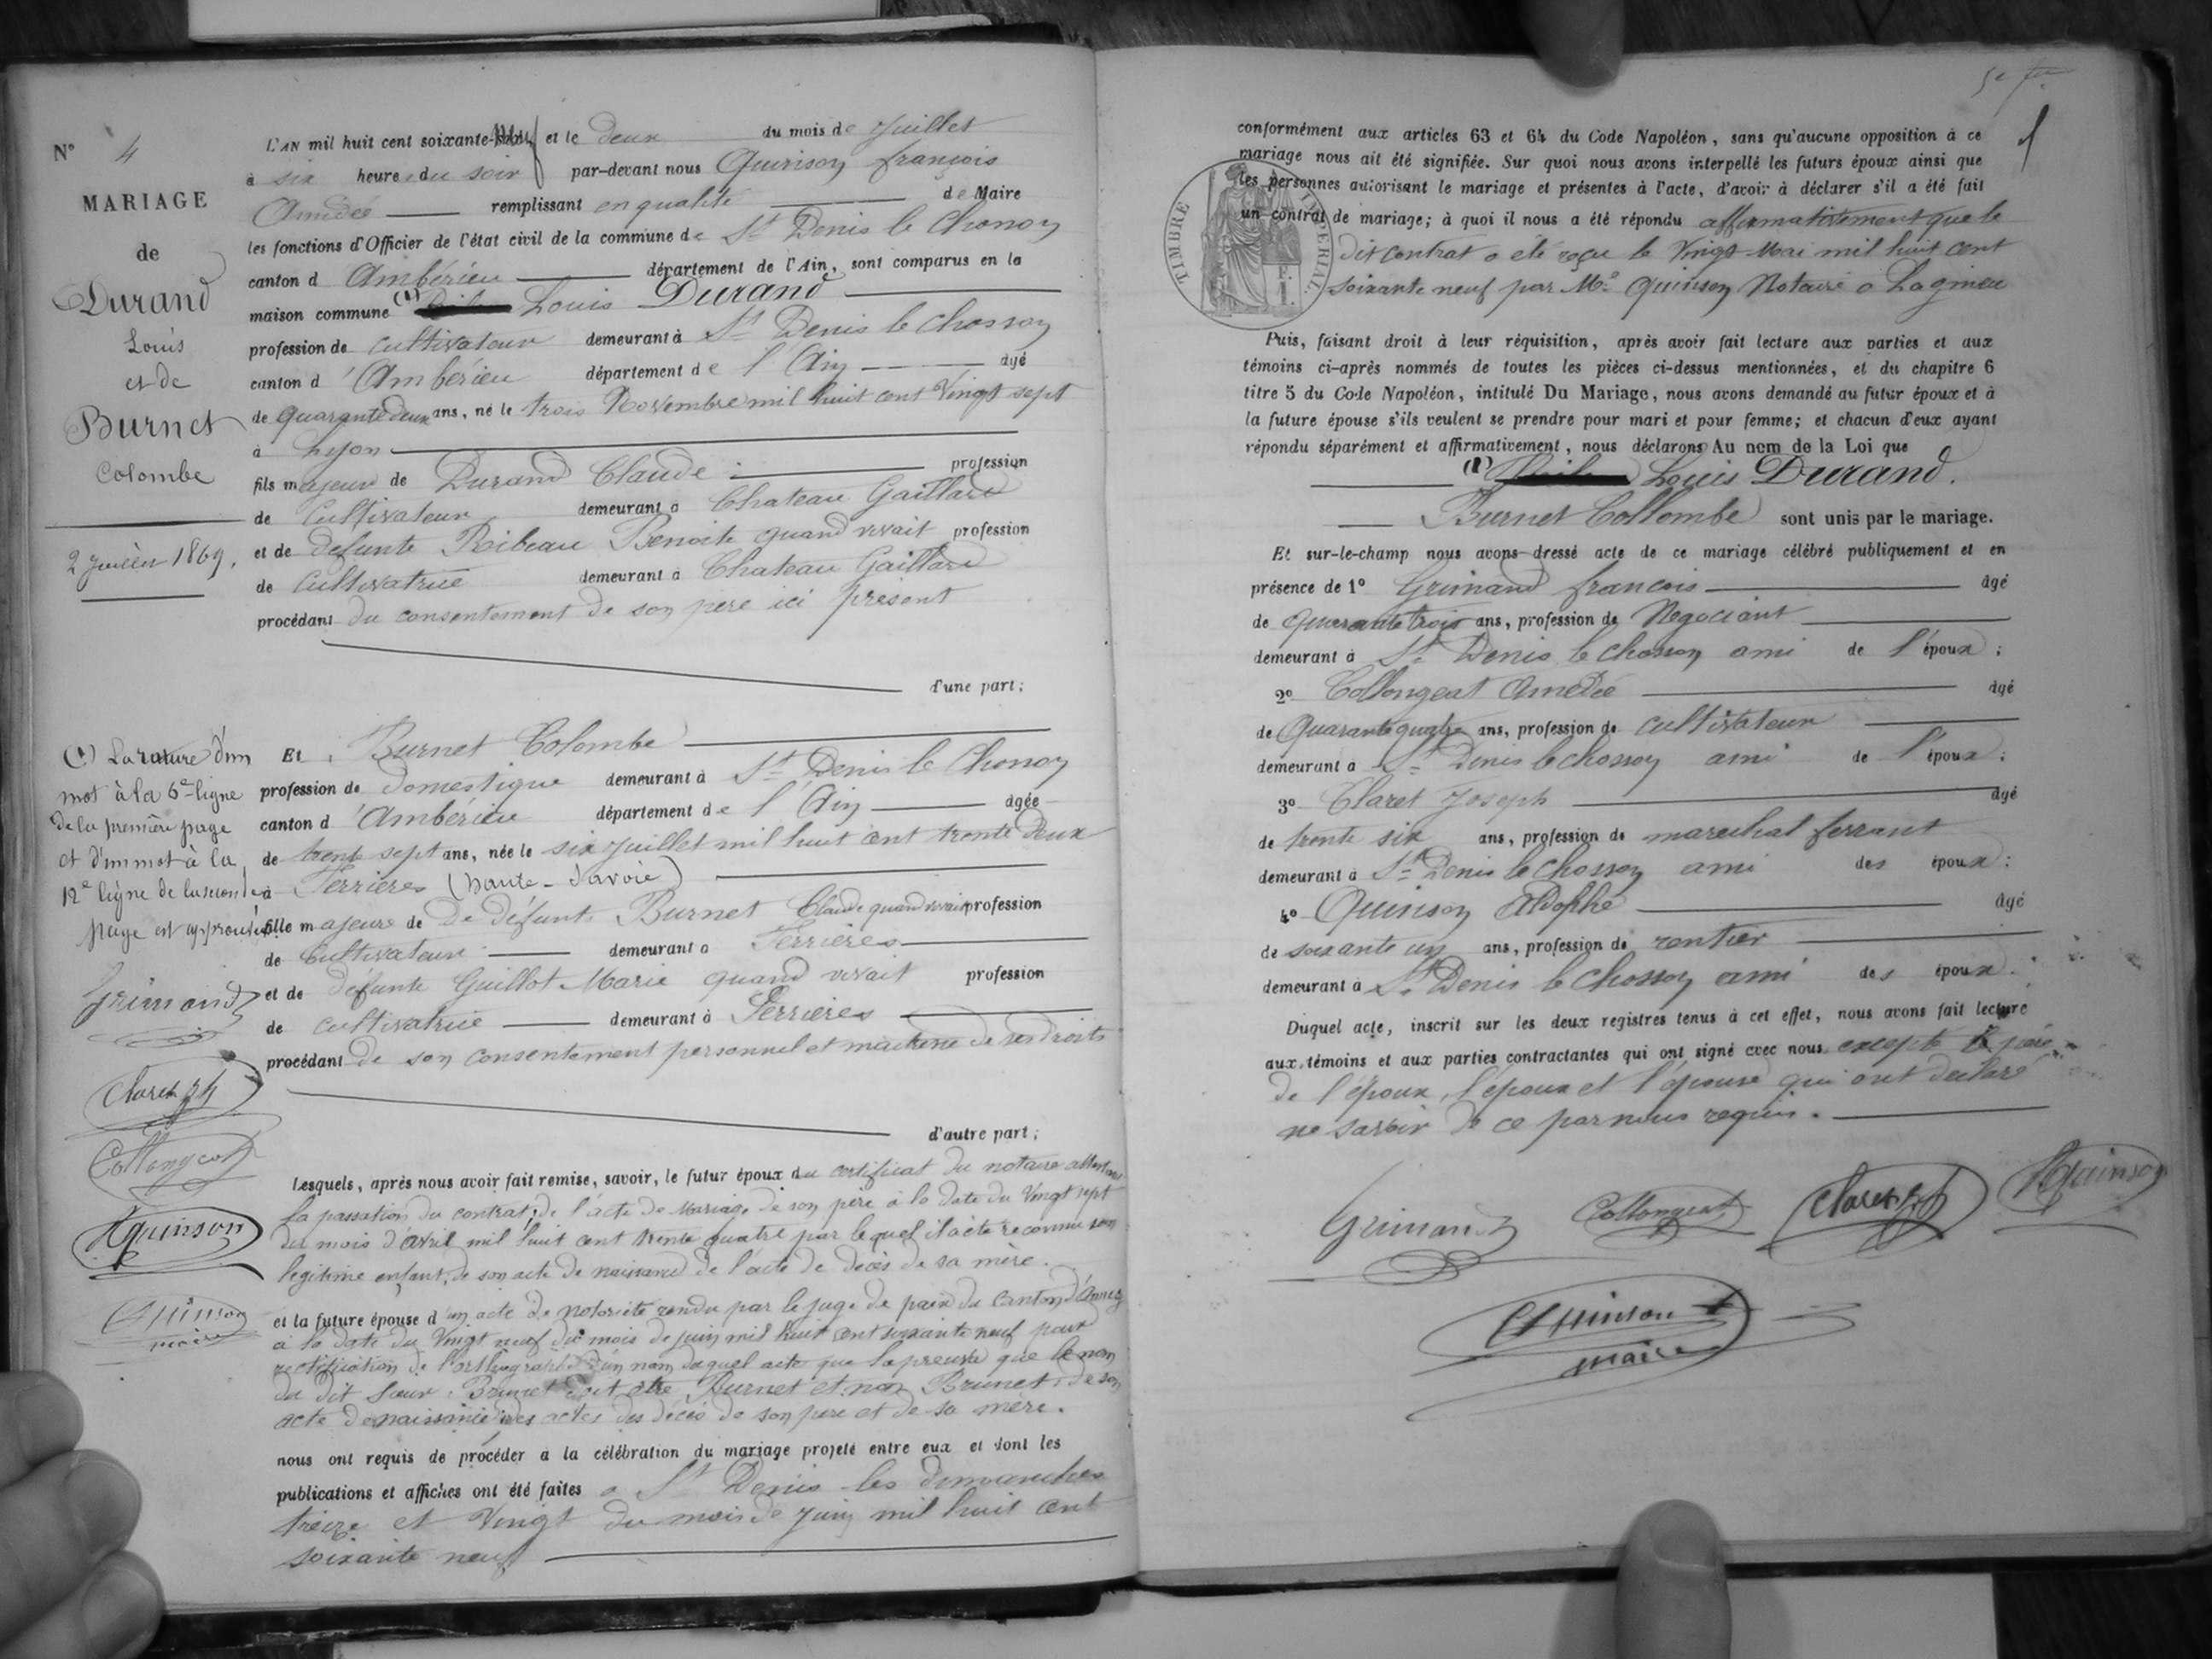 N° 4
MARIAGE
de
Durand
Louis
et de
Burnet
Colombe
2 Juillet 1869.
L'AN mil huit cent soixante-neuf et le deux du mois de Juillet
à six heure du soir par-devant nous Quinson françois
Amédée remplissant en qualité de Maire
les fonctions d'Officier de l'état civil de la commune de St Denis le Chosson
canton d'Ambérieu département de l'Ain, sont comparus en la
maison commune (1) Louis Durand
profession de cultivateur demeurant à St Denis le Chosson
canton d'Ambérieu département de l'Ain âgé
de quarante deux ans, né le trois Novembre mil huit cent Vingt sept
à Lyon
fils majeur de Durand Claude profession
de Cultivateur demeurant à Chateau Gaillard
et de defunte Ribeau Benoite quand vivait profession
de Cultivatrice demeurant à Chateau Gaillard
procédant du consentement de son père ici présent
d'une part;
Et Burnet Colombe
profession de domestique demeurant à St Denis le Chosson
canton d'Ambérieu département de l'Ain âgée
de trente sept ans, née le six Juillet mil huit cent trente deux
à Ferrières (haute-Savoie)
fille majeure de de défunt Burnet Claude quand vivait profession
de Cultivateur demeurant à Ferrières
et de défunte Guillot Marie quand vivait profession
de cultivatrice demeurant à Ferrières
procédant de son consentement personnel et maitresse de ses droits
d'autre part;
(1) La rature d'un
mot à la 6e ligne
de la première page
et d'un mot à la
12e ligne de la seconde
page est approuvée
Grimand
Claret Jh
Collongeat
AQuinson
AQuinson
maire
Lesquels, après nous avoir fait remise, savoir, le futur époux du certificat du notaire attestant
la passation du contrat, de l'acte de Mariage de son père à la date du Vingt sept
du mois d'avril mil huit cent trente quatre par lequel il a été reconnu son
legitime enfant, de son acte de naissance de l'acte de décès de sa mère.
et la future épouse d'un acte de notoriété rendu par le juge de paix du Canton d'Annecy
à la date du Vingt neuf du mois de juin mil huit cent soixante neuf pour
rectification de l'orthographe d'un nom duquel acte que la preuve que le nom
du dit sieur Brunet doit être Burnet et non Brunet, de son
acte de naissance, des actes des décès de son père et de sa mère.
nous ont requis de procéder à la célébration du mariage projeté entre eux et dont les
publications et affiches ont été faites a St Denis les dimanches
treize et Vingt du mois de Juin mil huit cent
soixante neuf
conformément aux articles 63 et 64 du Code Napoléon, sans qu'aucune opposition à ce
mariage nous ait été signifiée. Sur quoi nous avons interpellé les futurs époux ainsi que
les personnes autorisant le mariage et présentes à l'acte, d'avoir à déclarer s'il a été fait
un contrat de mariage; à quoi il nous a été répondu affirmativement que le
dit contrat a été reçu le Vingt Mai mil huit cent
soixante neuf par Me Quinson Notaire a Lagnieu
TIMBRE IMPERIAL
Puis, faisant droit à leur réquisition, après avoir fait lecture aux parties et aux
témoins ci-après nommés de toutes les pièces ci-dessus mentionnées, et du chapitre 6
titre 5 du Code Napoléon, intitulé Du Mariage, nous avons demandé au futur époux et à
la future épouse s'ils veulent se prendre pour mari et pour femme; et chacun d'eux ayant
répondu séparément et affirmativement, nous déclarons Au nom de la Loi que
(1) Louis Durand.
Burnet Collombe sont unis par le mariage.
Et sur-le-champ nous avons dressé acte de ce mariage célébré publiquement et en
présence de 1° Grimand francois âgé
de quarante trois ans, profession de Negociant
demeurant à St Denis le Chosson ami de l'époux;
2° Collongeat Amédée âgé
de Quarante quatre ans, profession de cultivateur
demeurant à St Denis le Chosson ami de l'époux;
3° Claret Joseph âgé
de trente six ans, profession de marechal ferrant
demeurant à St Denis le Chosson ami des époux;
4° Quinson Adolphe âgé
de soixante un ans, profession de rentier
demeurant à St Denis le Chosson ami des époux.
Duquel acte, inscrit sur les deux registres tenus à cet effet, nous avons fait lecture
aux témoins et aux parties contractantes qui ont signé avec nous excepté le père
de l'époux, l'époux et l'épouse qui ont déclaré
ne savoir de ce par nous requis.
Grimand Collongeat Claret Jh AQuinson
AQuinson
maire